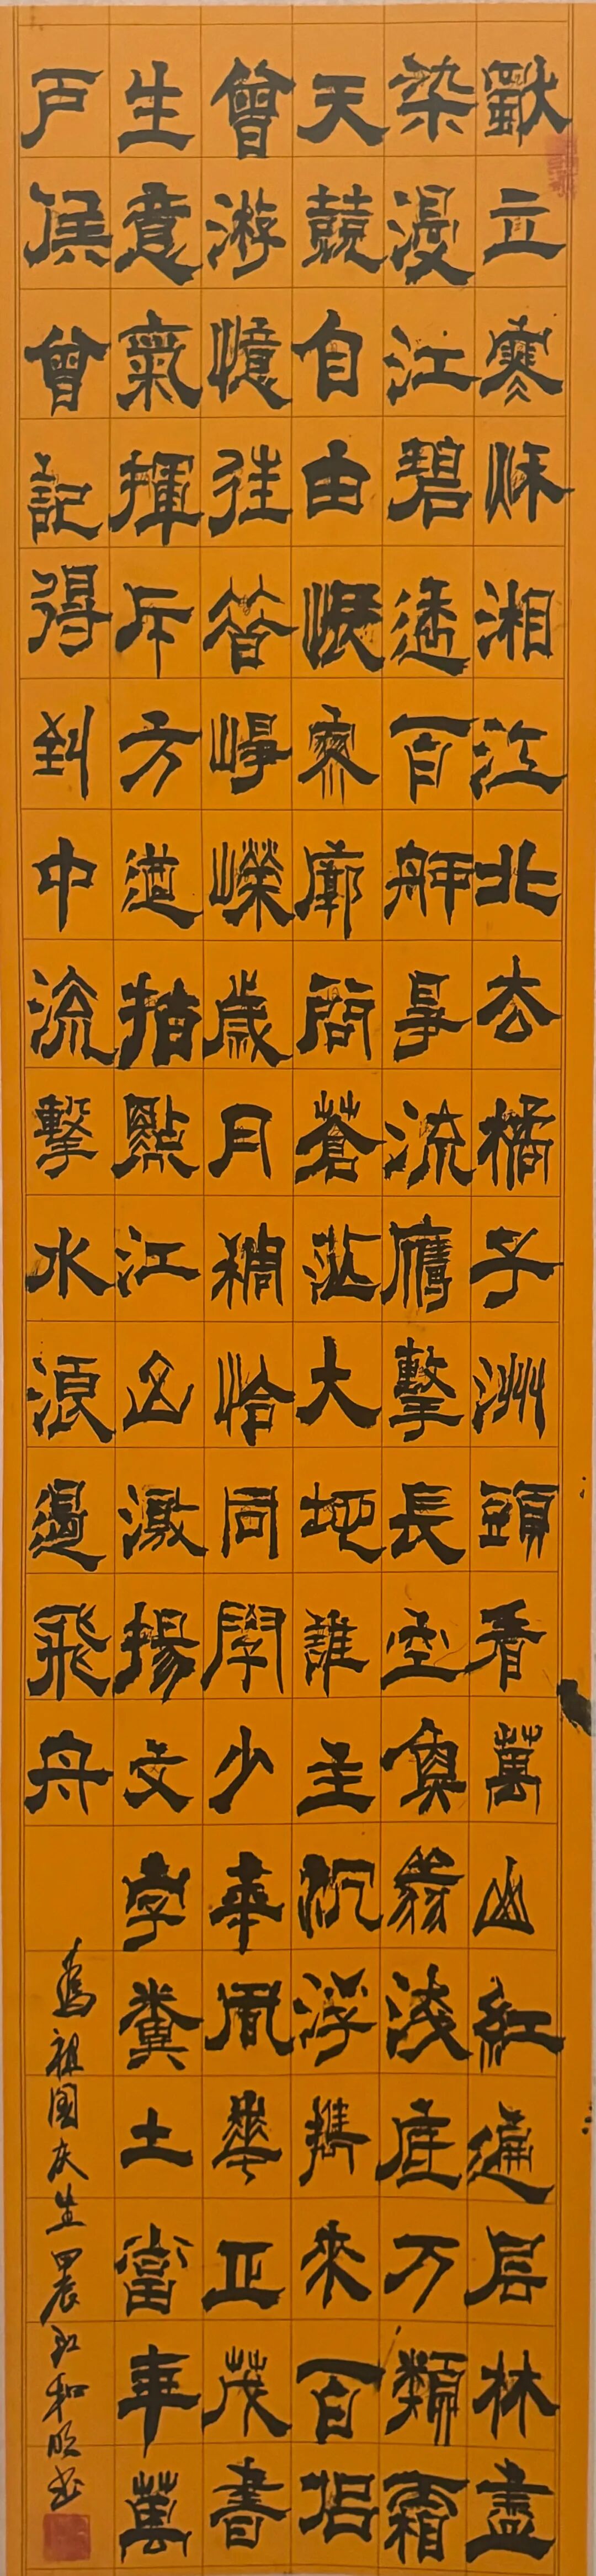 獨立寒秌湘江北去橘子洲頭看萬山紅遍层林盡
染漫江碧透百舸爭流鷹擊長空魚翔淺底万類霜
天競自由悵寥廓問蒼茫大地誰主沉浮攜來百侶
曾游憶往昔崢嶸歲月稠恰同學少年風華正茂書
生意氣揮斥方遒指點江山激揚文字糞土當年萬
戶侯曾記得到中流擊水浪遏飛舟
為祖國庆生